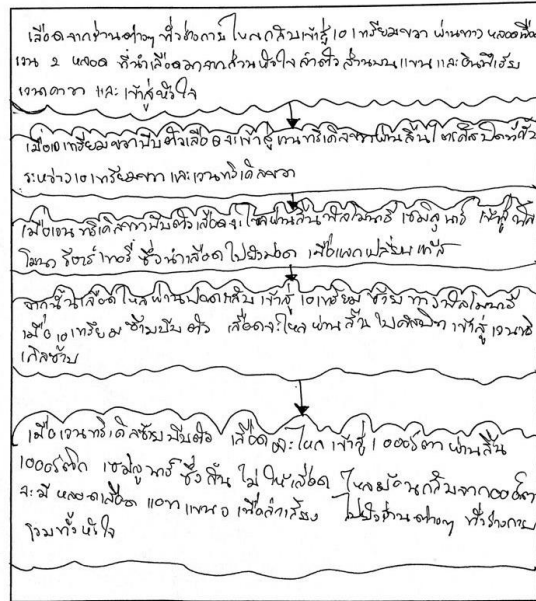 เลือดจากส่วนต่างๆ ทั่วร่างกาย ไหลกลับเข้าสู่ เอเทรียมขวา ผ่านทาง หลอดเลือด
เวน 2 หลอด ที่นำเลือดมาจากส่วนหัวใจ ลำตัวส่วนบน แขน และอินฟีเรีย
เวนาคาวา และ เข้าสู่หัวใจ
เมื่อเอเทรียมขวาบีบตัวเลือดจะเข้าสู่เวนทริเคิลขวาผ่านลิ้นไตรคัสปิดที่กั้น
ระหว่างเอเทรียมขวา และเวนทริเคิลขวา
เมื่อเวนทริเคิลขวาบีบตัวเลือดจะไหลผ่านลิ้นพัลโมนารี เซมิลูนาร์ เข้าสู่พัล
โมนารีอาร์เทอรี่ ซึ่งนำเลือดไปยังปอด เพื่อแลกเปลี่ยนแก๊ส
จากนั้นเลือดไหลผ่านปอดกลับเข้าสู่เอเทรียมซ้ายทางพัลโมนารี
เมื่อเอเทรียมซ้ายบีบตัว เลือดจะไหลผ่านลิ้นไบคัสปิด เข้าสู่เวนทริ
เคิลซ้าย
เมื่อเวนทริเคิลซ้ายบีบตัว เลือดจะไหลเข้าสู่เออร์ตาผ่านลิ้น
เซมิลูนาร์ ซึ่งกั้นไม่ให้เลือดไหลย้อนกลับจาก
จะมีหลอดเลือด แตกแขนง เพื่อลำเลียง ไปยังส่วนต่างๆ ทั่วร่างกาย
รวมทั้งหัวใจ